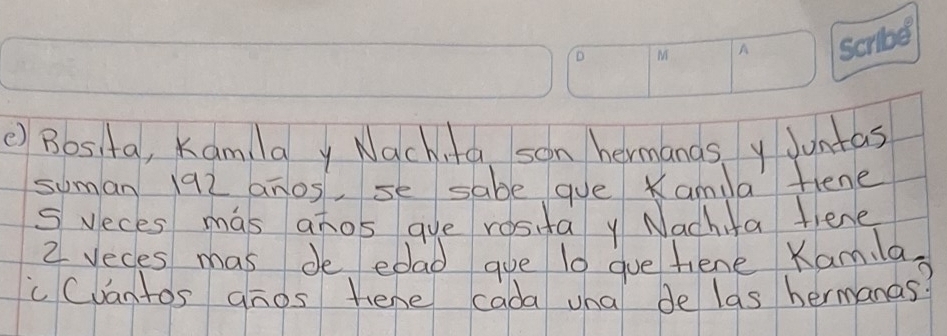 D M A Scribe
e) Bosita, Kamila y Nachita son hermanas y Juntas
suman 192 años, se sabe que Kamila tiene
5 veces más años que rosita y Nachita tiene
2 veces mas de edad que lo que tiene Kamila.
¿Cuántos años tiene cada una de las hermanas?